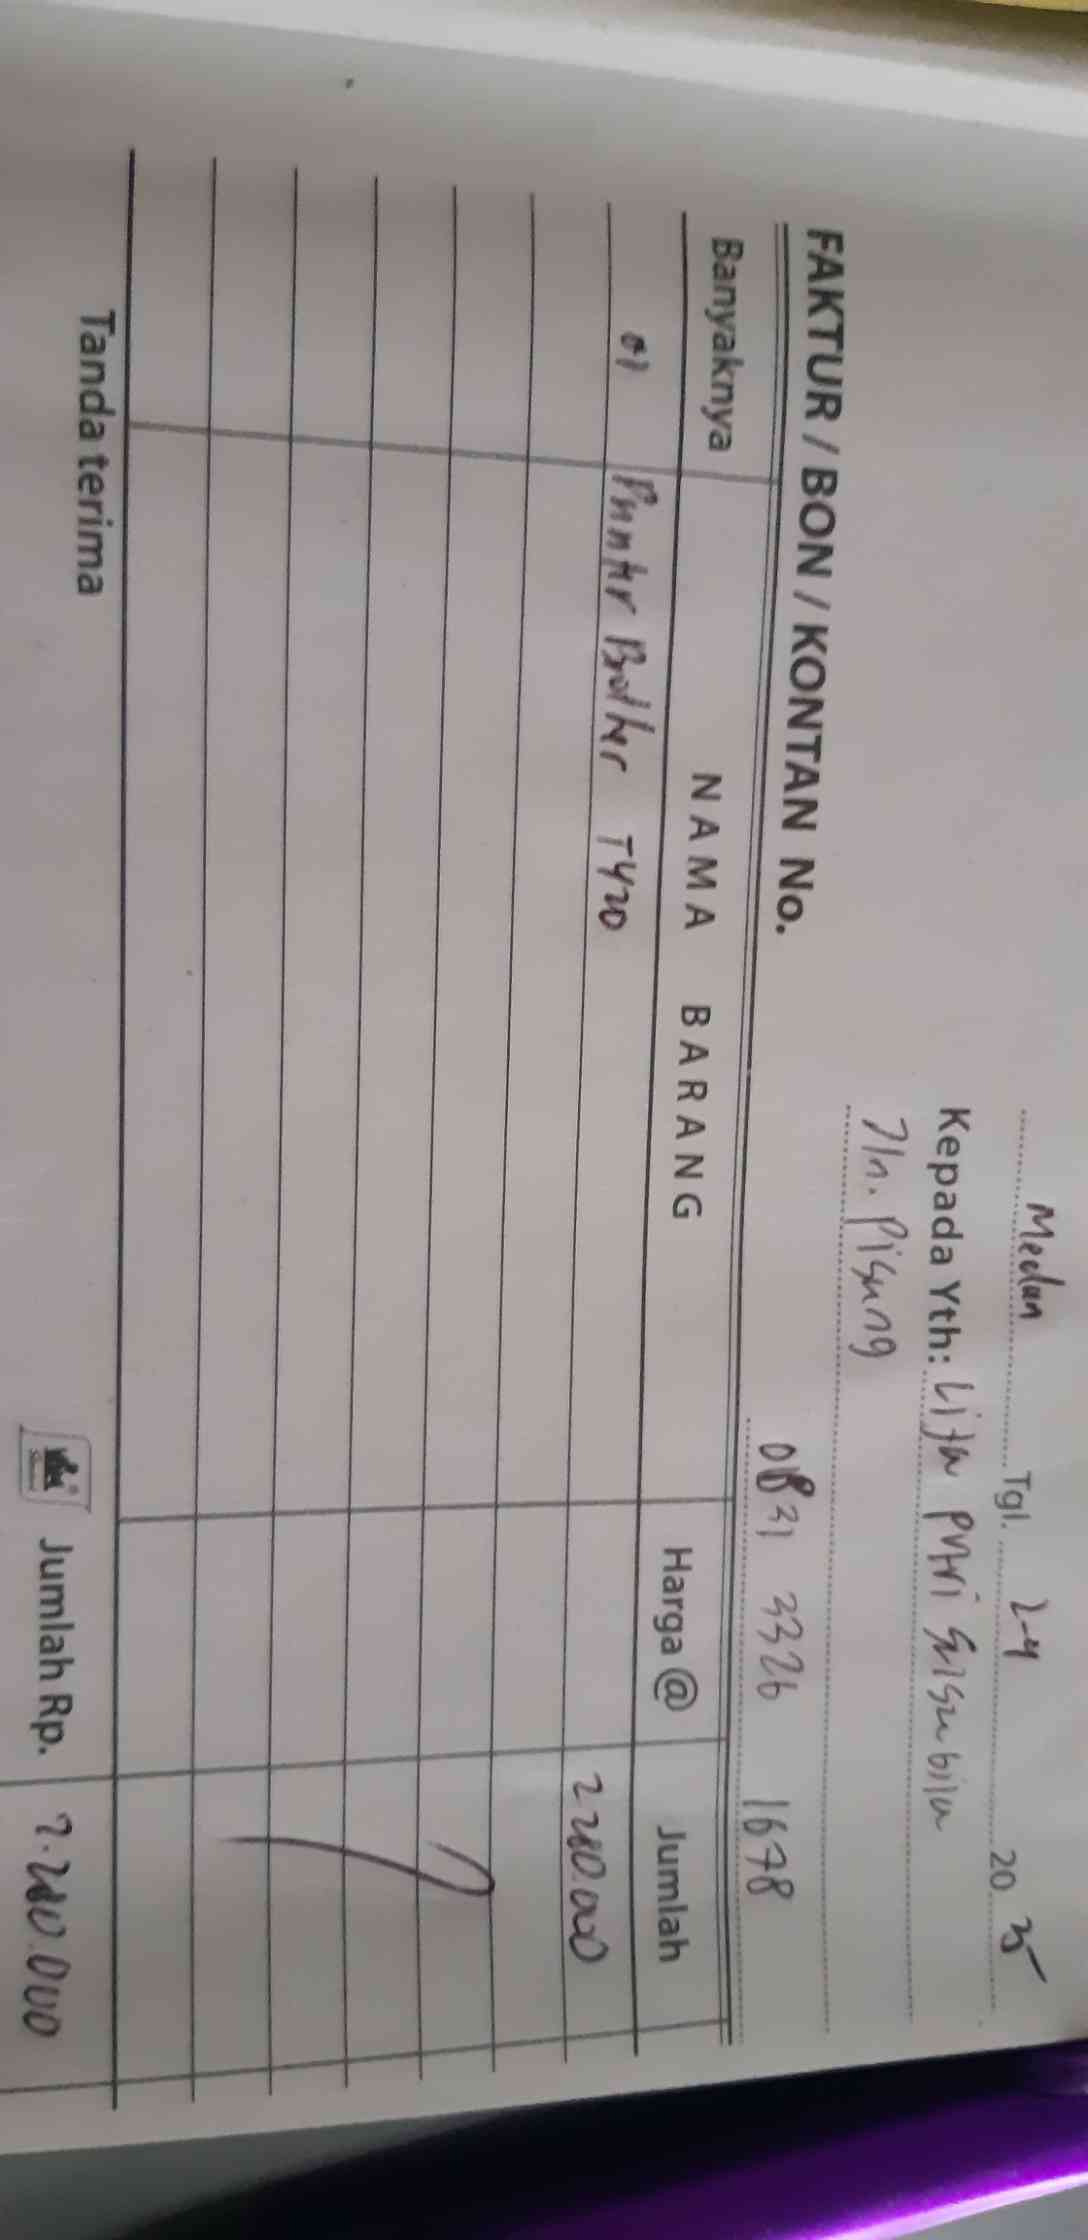 Medan Tgl. 2-4 2025
Kepada Yth: Lija putri
Jln. Pisang
0831 3326 1678
FAKTUR / BON / KONTAN No.
Banyaknya NAMA BARANG Harga @ Jumlah
01 Printer Brother T420 2280.000
Tanda terima Jumlah Rp. 2.280.000